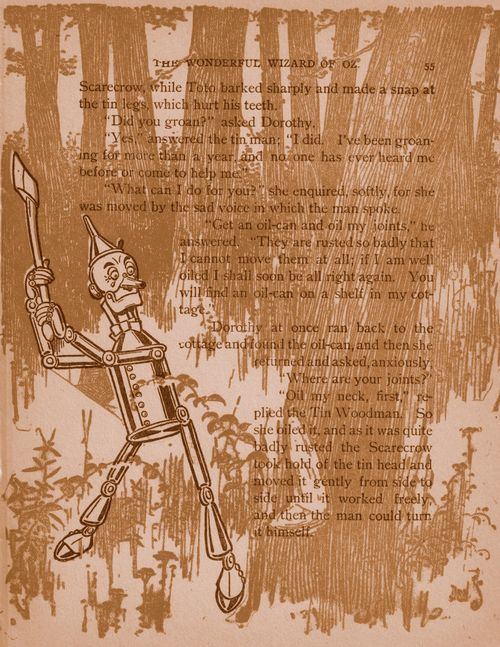 THE WONDERFUL WIZARD OF OZ. 55
Scarecrow, while Toto barked sharply and made a snap at
the tin legs, which hurt his teeth.
"Did you groan?" asked Dorothy.
"Yes," answered the tin man; "I did. I've been groan-
ing for more than a year, and no one has ever heard me
before or come to help me."
"What can I do for you?" she enquired, softly, for she
was moved by the sad voice in which the man spoke.
"Get an oil-can and oil my joints," he
answered. "They are rusted so badly that
I cannot move them at all; if I am well
oiled I shall soon be all right again. You
will find an oil-can on a shelf in my cot-
tage."
Dorothy at once ran back to the
cottage and found the oil-can, and then she
returned and asked, anxiously,
"Where are your joints?"
"Oil my neck, first," re-
plied the Tin Woodman. So
she oiled it, and as it was quite
badly rusted the Scarecrow
took hold of the tin head and
moved it gently from side to
side until it worked freely,
and then the man could turn
it himself.